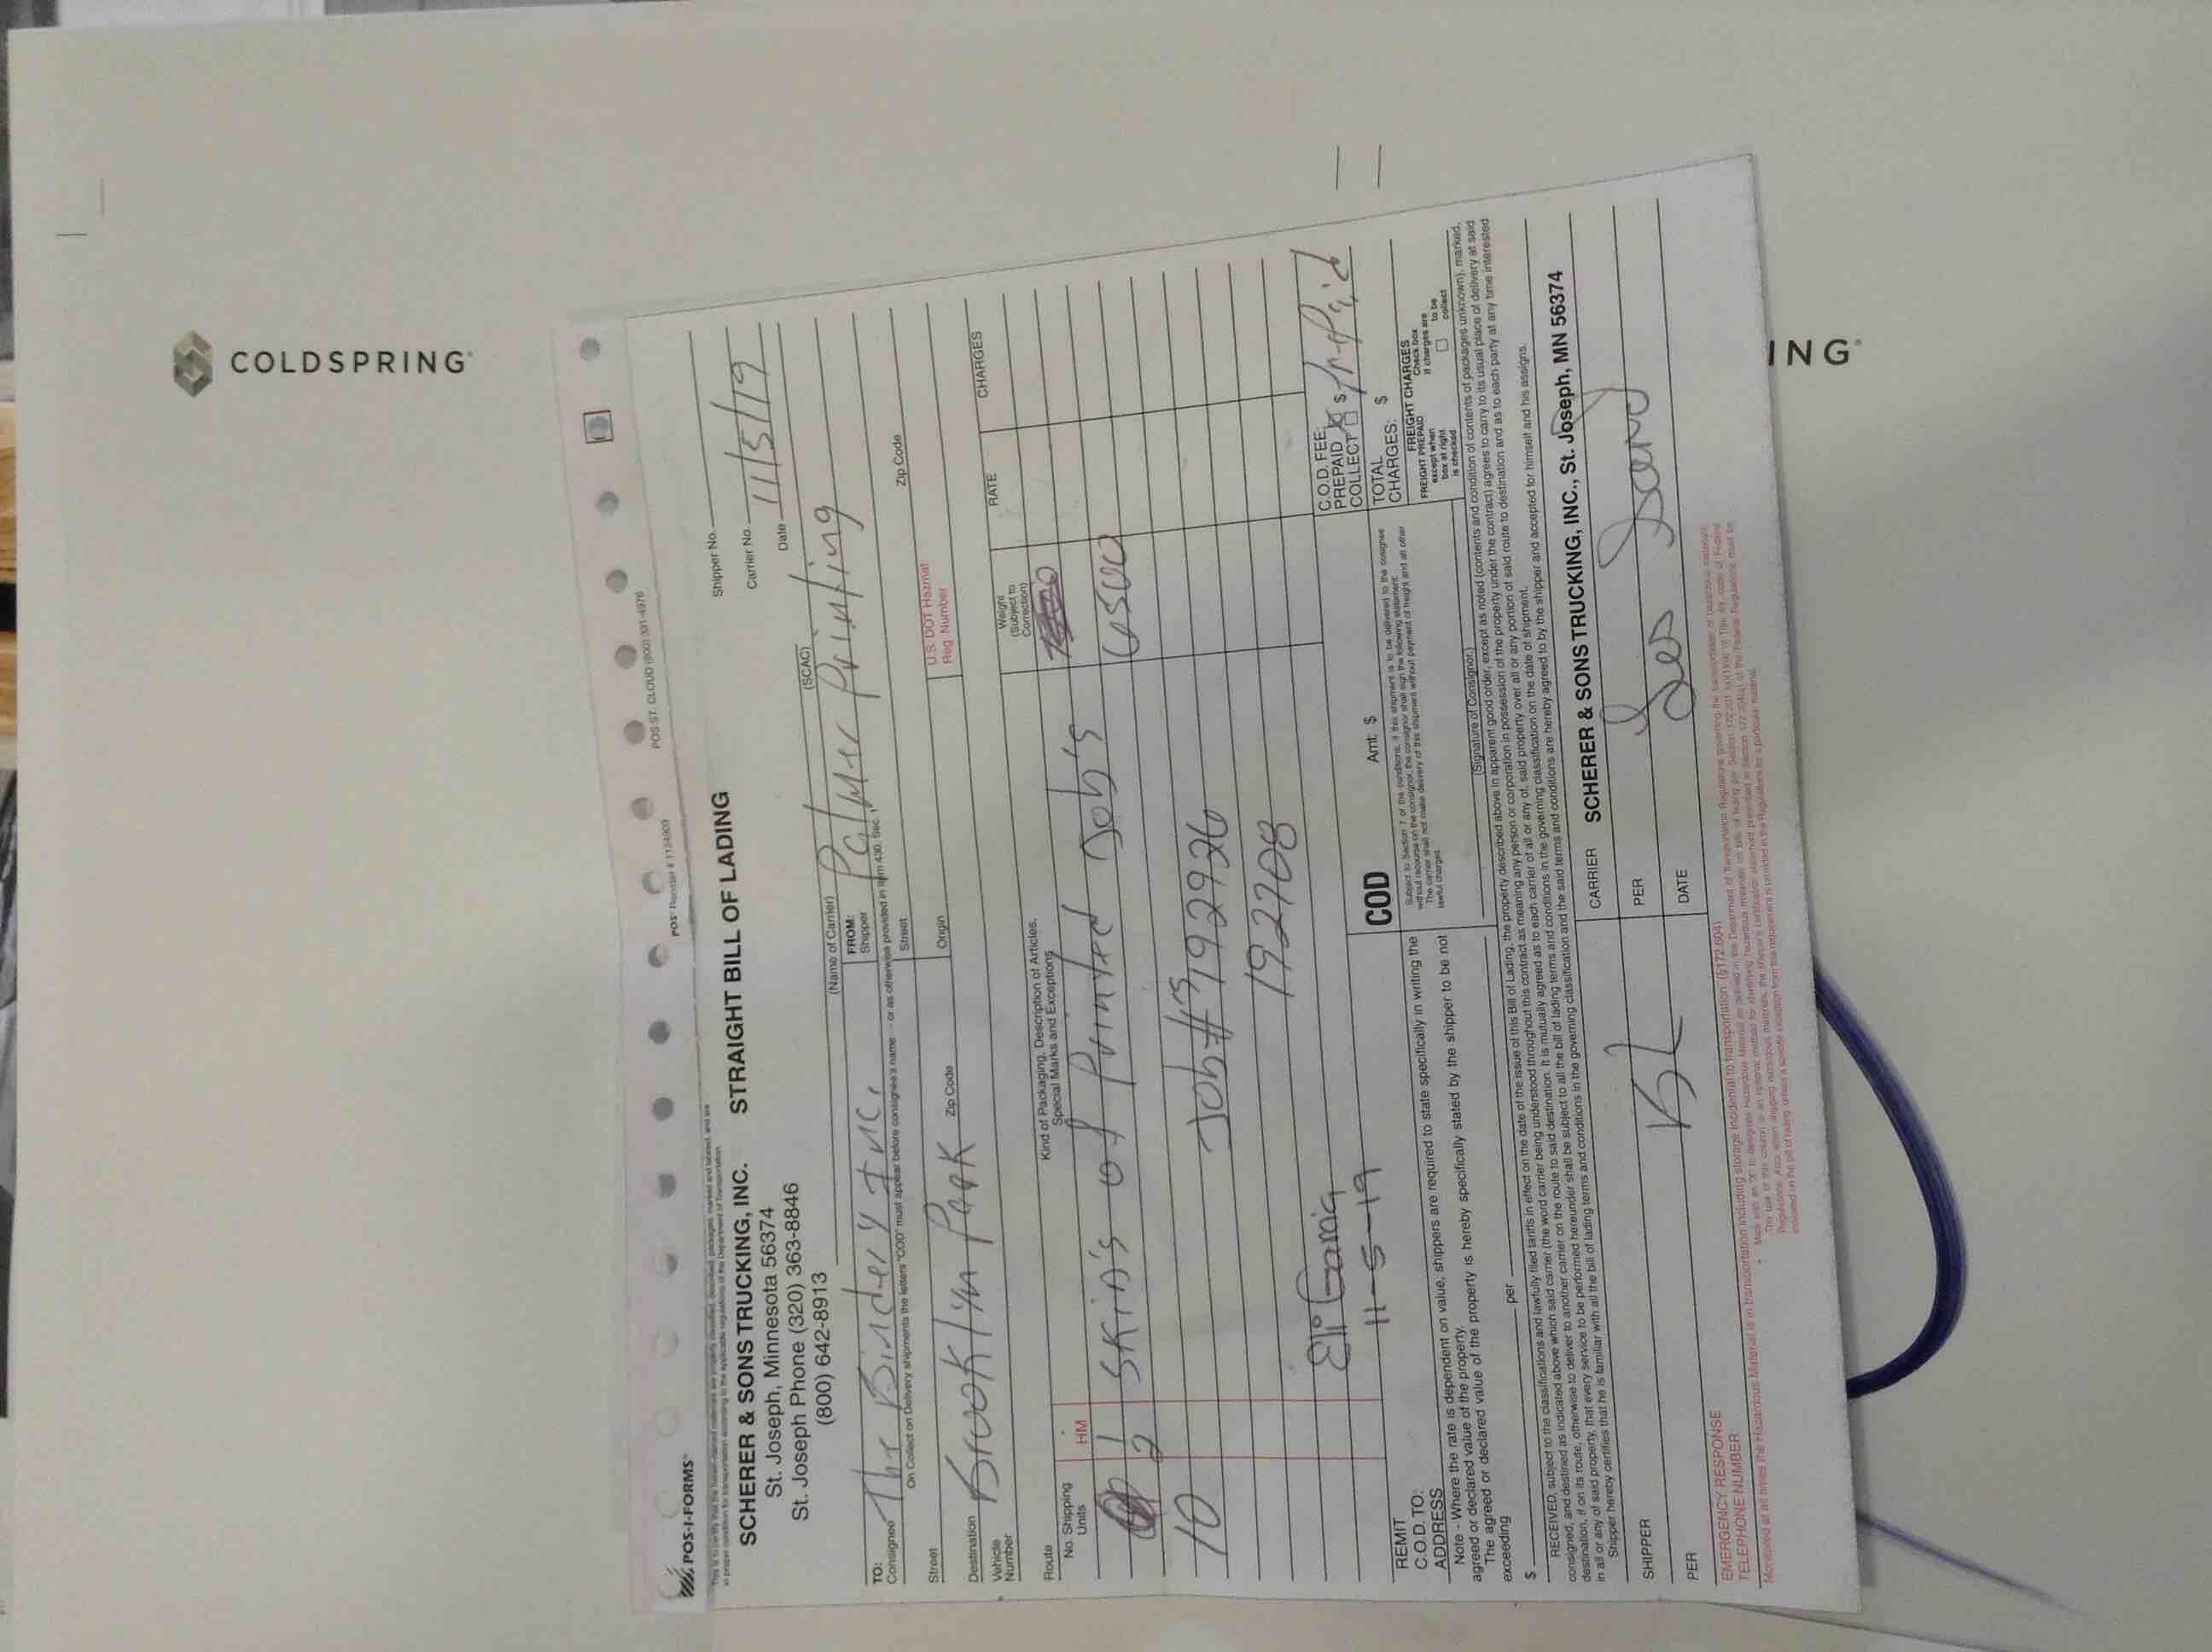 COLDSPRING®
POS-I-FORMS
POS ST. CLOUD (800) 331-4976
SCHERER & SONS TRUCKING, INC. STRAIGHT BILL OF LADING
St. Joseph, Minnesota 56374
St. Joseph Phone (320) 363-8846
(800) 642-8913
Shipper No.
Carrier No.
Date 11/5/19
(Name of Carrier) (SCAC)
TO:
Consignee The Bindery Inc.
FROM:
Shipper Palmer Printing
On Collect on Delivery shipments the letters "COD" must appear before consignee's name - or as otherwise provided in Item 430, Sec.
Street
Street Zip Code
Destination Brooklyn Park Zip Code
Origin
U.S. DOT Hazmat
Reg. Number
Vehicle
Number
Route
No. Shipping
Units
HM
Kind of Packaging, Description of Articles,
Special Marks and Exceptions
Weight
(Subject to
Correction)
RATE
CHARGES
Skids of Printed Job's 6500
10 Job #'s 192936
192708
Eli Garcia
11-5-19
REMIT
C.O.D. TO:
ADDRESS
COD Amt: $
C.O.D. FEE:
PREPAID
COLLECT $ PrePaid
Note - Where the rate is dependent on value, shippers are required to state specifically in writing the
agreed or declared value of the property.
The agreed or declared value of the property is hereby specifically stated by the shipper to be not
exceeding
$ per
Subject to Section 7 of the conditions, if this shipment is to be delivered to the consignee
without recourse on the consignor, the consignor shall sign the following statement:
The carrier shall not make delivery of this shipment without payment of freight and all other
lawful charges.
(Signature of Consignor)
TOTAL
CHARGES: $
FREIGHT CHARGES
FREIGHT PREPAID
except when
box at right
is checked
Check box
if charges are
to be
collect
RECEIVED, subject to the classifications and lawfully filed tariffs in effect on the date of the issue of this Bill of Lading, the property described above in apparent good order, except as noted (contents and condition of contents of packages unknown), marked,
consigned, and destined as indicated above which said carrier (the word carrier being understood throughout this contract as meaning any person or corporation in possession of the property under the contract) agrees to carry to its usual place of delivery at said
destination, if on its route, otherwise to deliver to another carrier on the route to said destination. It is mutually agreed as to each carrier of all or any of, said property over all or any portion of said route to destination and as to each party at any time interested
in all or any of said property, that every service to be performed hereunder shall be subject to all the bill of lading terms and conditions in the governing classification on the date of shipment.
Shipper hereby certifies that he is familiar with all the bill of lading terms and conditions in the governing classification and the said terms and conditions are hereby agreed to by the shipper and accepted for himself and his assigns.
SHIPPER
CARRIER SCHERER & SONS TRUCKING, INC., St. Joseph, MN 56374
PER
PER
DATE
EMERGENCY RESPONSE
TELEPHONE NUMBER:
Monitored at all times the Hazardous Material is in transportation including storage incidental to transportation. (§172.604)
ING®